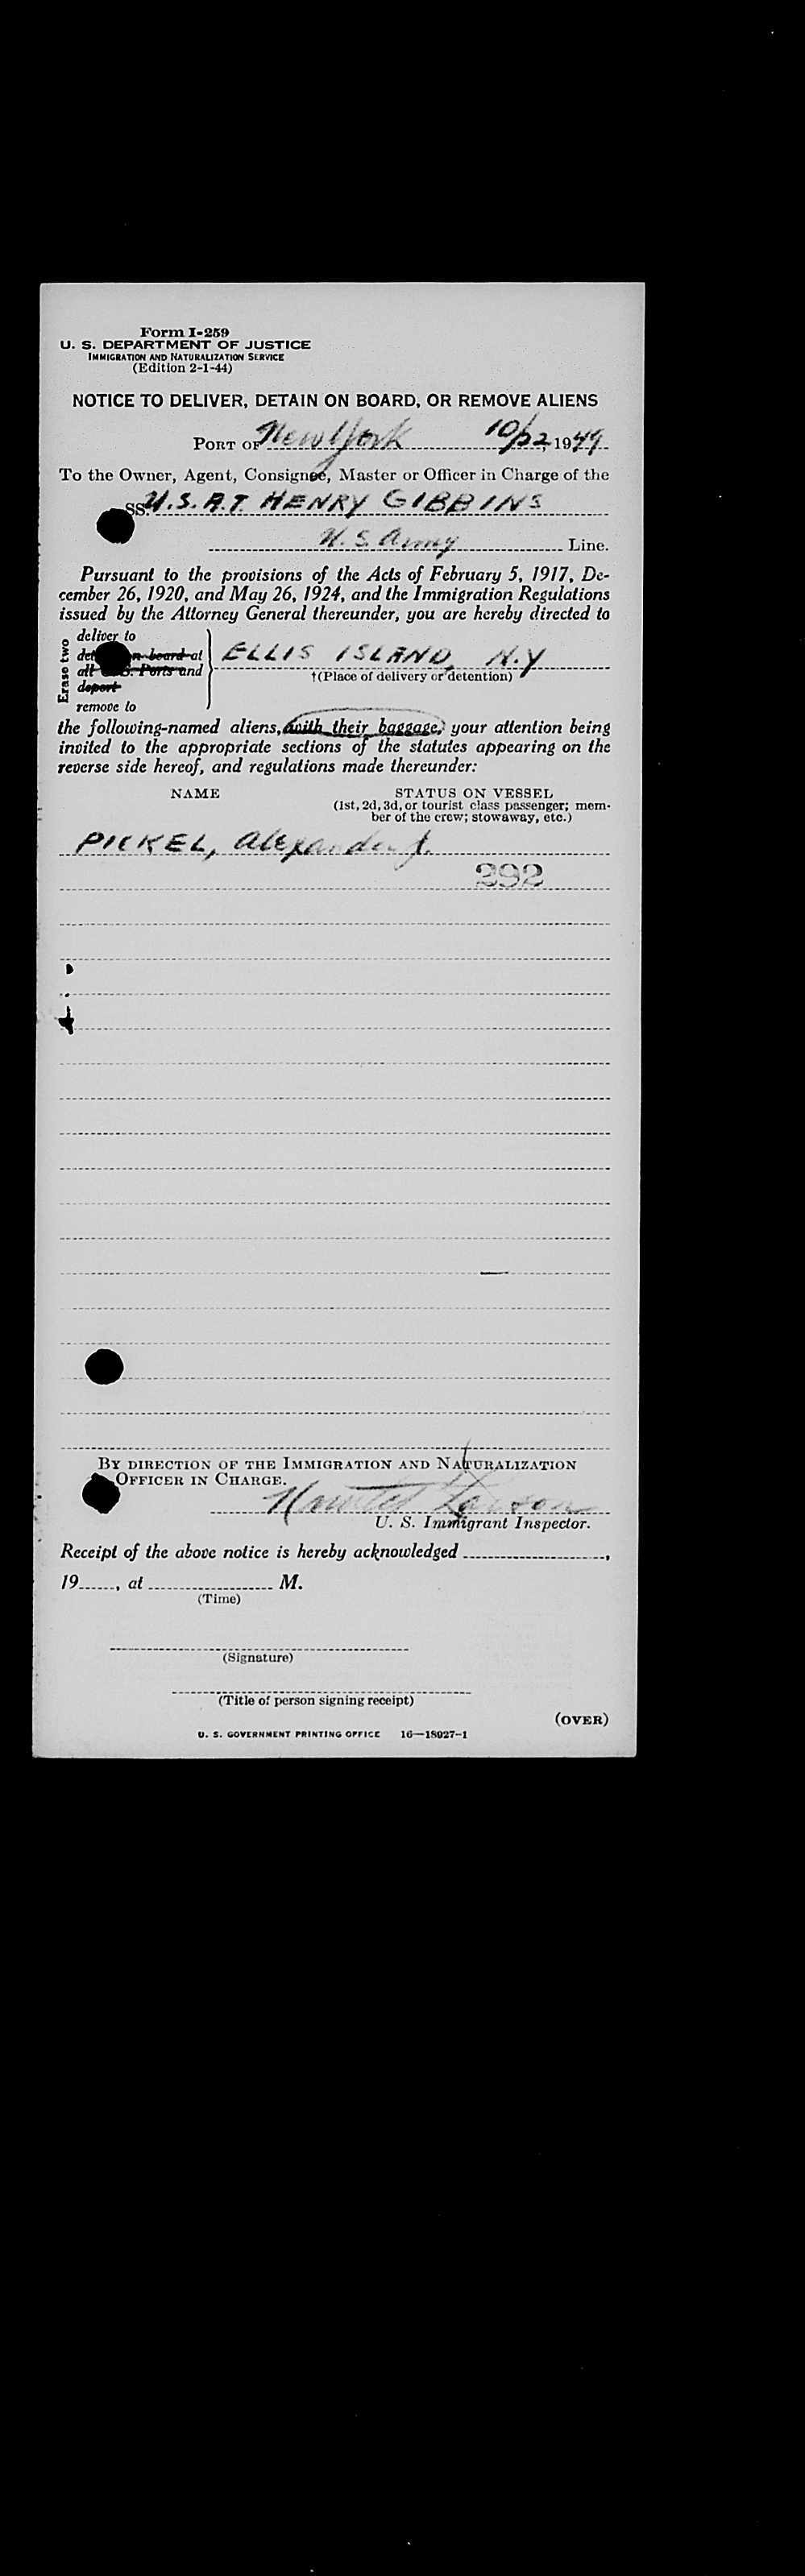 Form I-259
U. S. DEPARTMENT OF JUSTICE
IMMIGRATION AND NATURALIZATION SERVICE
(Edition 2-1-44)
NOTICE TO DELIVER, DETAIN ON BOARD, OR REMOVE ALIENS
PORT OF New York 10/22, 1949
To the Owner, Agent, Consignee, Master or Officer in Charge of the
SS. U.S.A.T. HENRY GIBBINS
U.S. Army Line.
Pursuant to the provisions of the Acts of February 5, 1917, De-
cember 26, 1920, and May 26, 1924, and the Immigration Regulations
issued by the Attorney General thereunder, you are hereby directed to
Erase two
deliver to
n board at
all U.S. Ports and
deport
remove to
ELLIS ISLAND, N.Y
†(Place of delivery or detention)
the following-named aliens, with their baggage, your attention being
invited to the appropriate sections of the statutes appearing on the
reverse side hereof, and regulations made thereunder:
NAME STATUS ON VESSEL
(1st, 2d, 3d, or tourist class passenger; mem-
ber of the crew; stowaway, etc.)
PICKEL, Alexander J.
292
BY DIRECTION OF THE IMMIGRATION AND NATURALIZATION
OFFICER IN CHARGE.
Larson
U. S. Immigrant Inspector.
Receipt of the above notice is hereby acknowledged ,
19 , at M.
(Time)
(Signature)
(Title of person signing receipt)
(OVER)
U. S. GOVERNMENT PRINTING OFFICE 16—18027-1